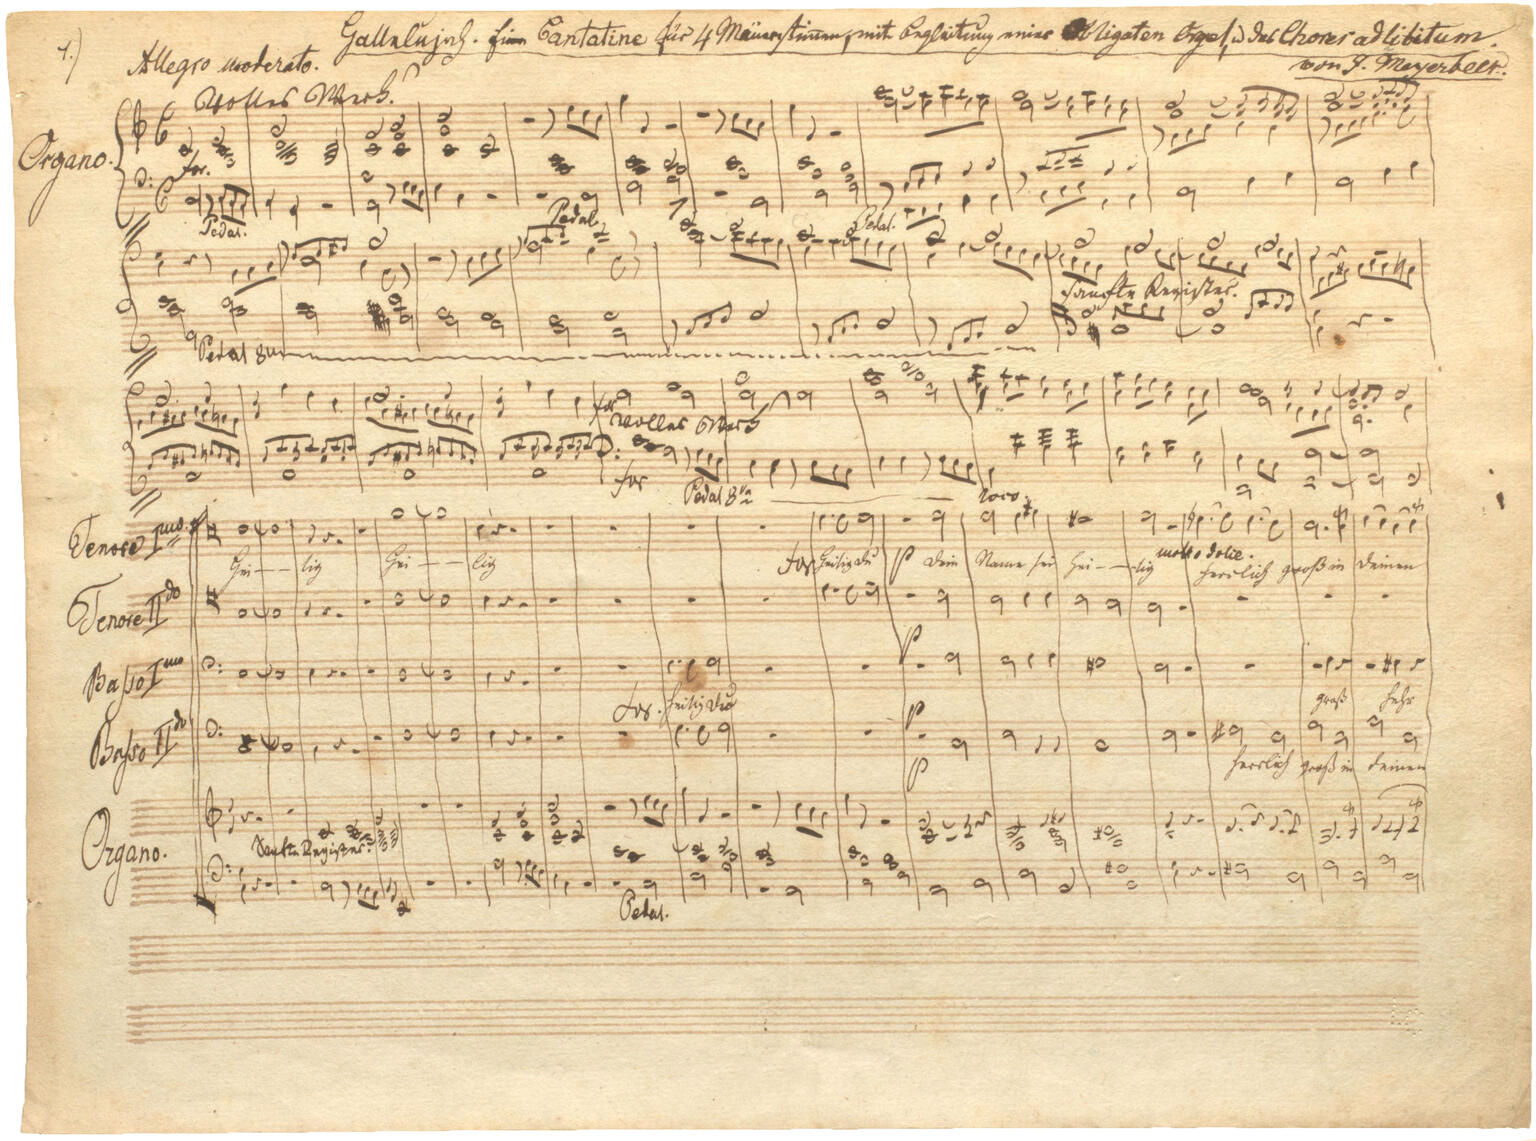 1.)
Hallelujah. Eine Cantatine für 4 Männerstimmen, mit Begleitung einer obligaten Orgel, u des Chores ad libitum.
von J. Meyerbeer.
Allegro moderato.
Volles Werk.
Organo.
for.
Pedal.
Pedal.
Pedal.
Sanfte Register.
Pedal 8va
for
Volles Werk
for
Pedal 8va
loco.
Tenore Imo.
Hei - - lig Hei - - lig for heilig du p Dein Name sei hei - - lig molto dolce. herrlich groß in deinen
Tenore IIdo
p
Basso Imo
for. heilig du p groß hehr
Basso IIdo
p herrlich groß in deinen
Organo.
Sanfte Register.
Pedal.